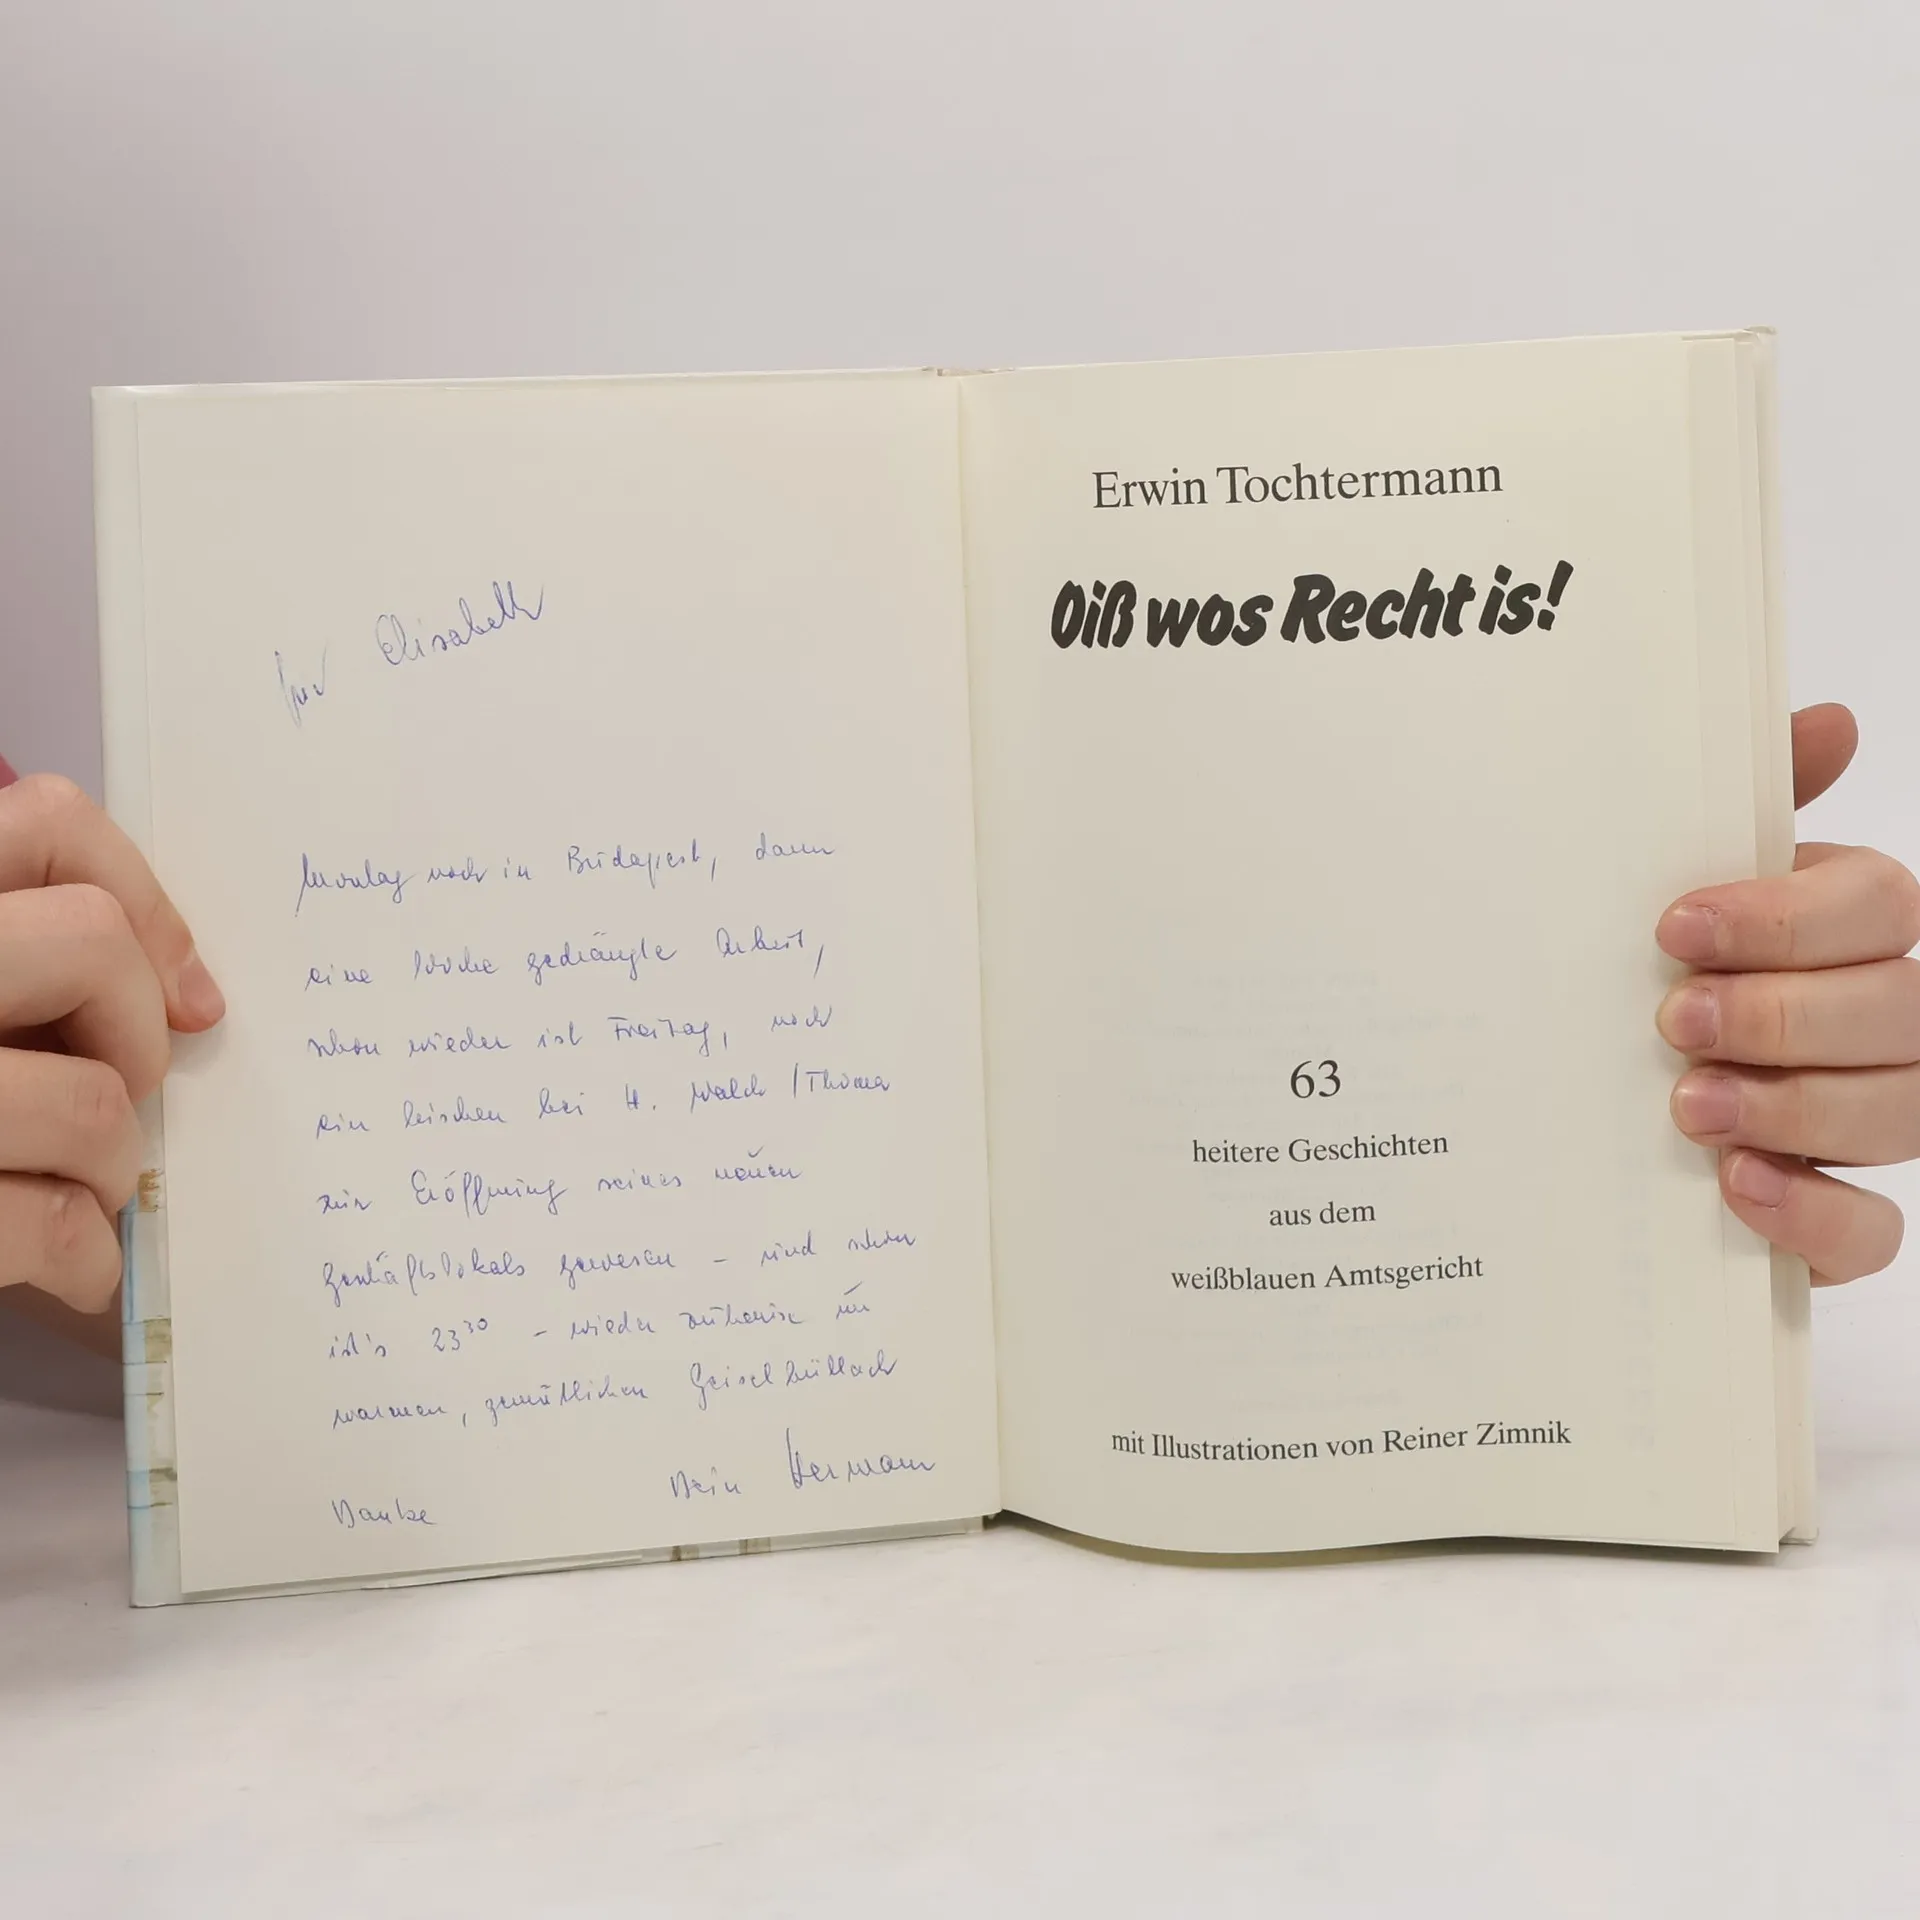 für Elisabeth
Montag noch in Budapest, dann
eine Woche gedrängte Arbeit,
schon wieder ist Freitag, noch
ein bischen bei H. Walch / Thoma
zur Eröffnung seines neuen
Geschäftslokals gewesen – und schon
ist's 23³⁰ – wieder zuhause im
warmen, gemütlichen Geiselbullach
Dein Hermann
Danke
Erwin Tochtermann
Oiß wos Recht is!
63
heitere Geschichten
aus dem
weißblauen Amtsgericht
mit Illustrationen von Reiner Zimnik